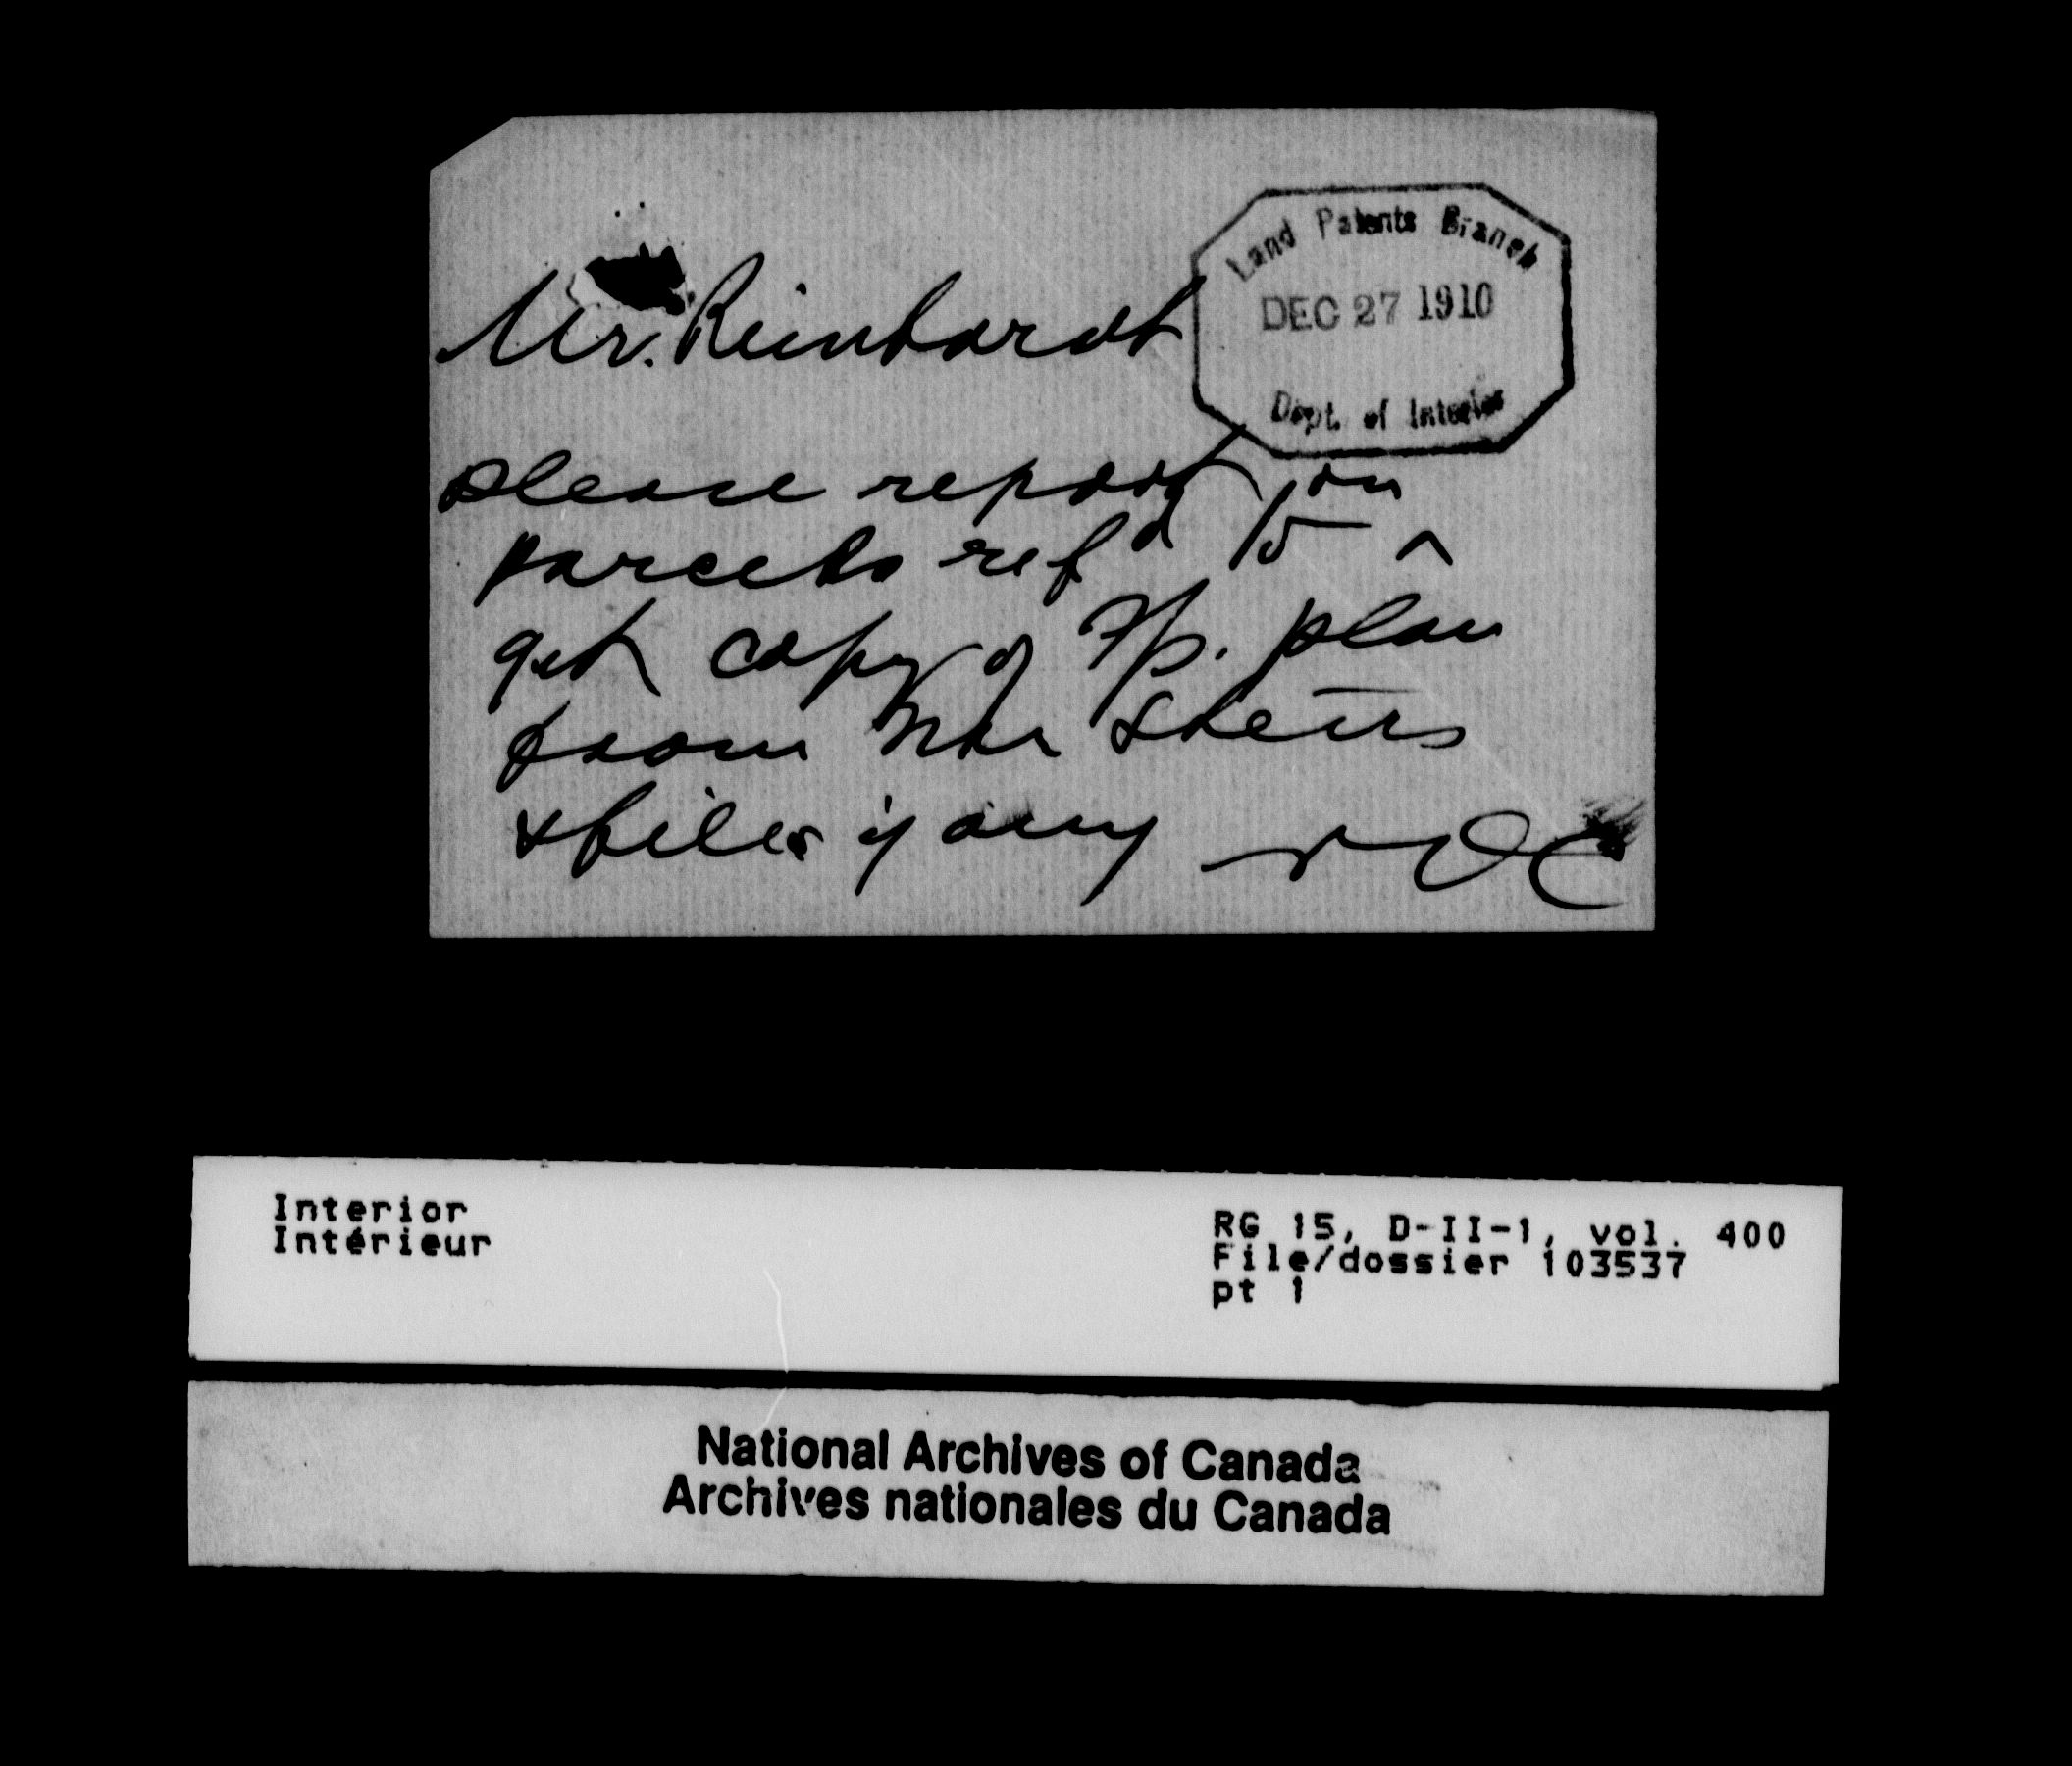 Land Patents Branch
DEC 27 1910
Dept. of Interior
Mr. Reinhardt
please report on
parcels ref'd to &
get copy of Tp. plan
from Mr
& files if any
Interior
Intérieur
RG 15, D-II-1, vol. 400
File/dossier 103537
pt 1
National Archives of Canada
Archives nationales du Canada